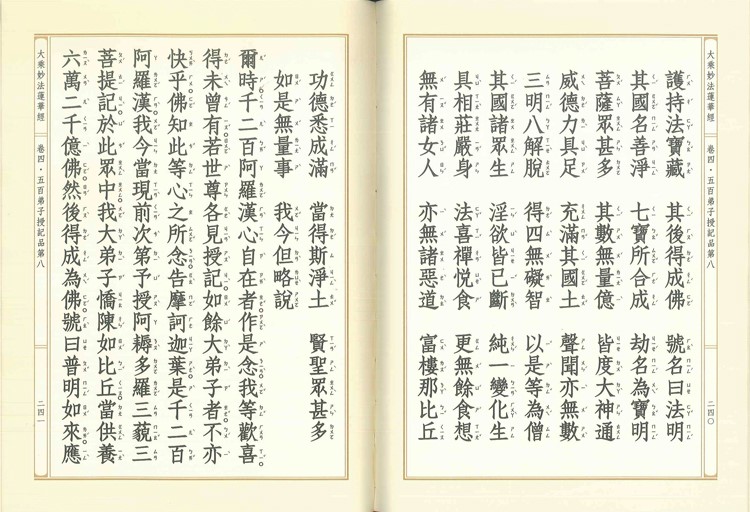 大乘妙法蓮華經
卷四．五百弟子授記品第八
二四〇
護持法寶藏　其後得成佛　號名曰法明
其國名善淨　七寶所合成　劫名為寶明
菩薩眾甚多　其數無量億　皆度大神通
威德力具足　充滿其國土　聲聞亦無數
三明八解脫　得四無礙智　以是等為僧
其國諸眾生　淫欲皆已斷　純一變化生
具相莊嚴身　法喜禪悅食　更無餘食想
無有諸女人　亦無諸惡道　富樓那比丘
功德悉成滿　當得斯淨土　賢聖眾甚多
如是無量事　我今但略說
爾時千二百阿羅漢心自在者作是念我等歡喜
得未曾有若世尊各見授記如餘大弟子者不亦
快乎佛知此等心之所念告摩訶迦葉是千二百
阿羅漢我今當現前次第予授阿耨多羅三藐三
菩提記於此眾中我大弟子憍陳如比丘當供養
六萬二千億佛然後得成為佛號曰普明如來應
大乘妙法蓮華經
卷四．五百弟子授記品第八
二四一